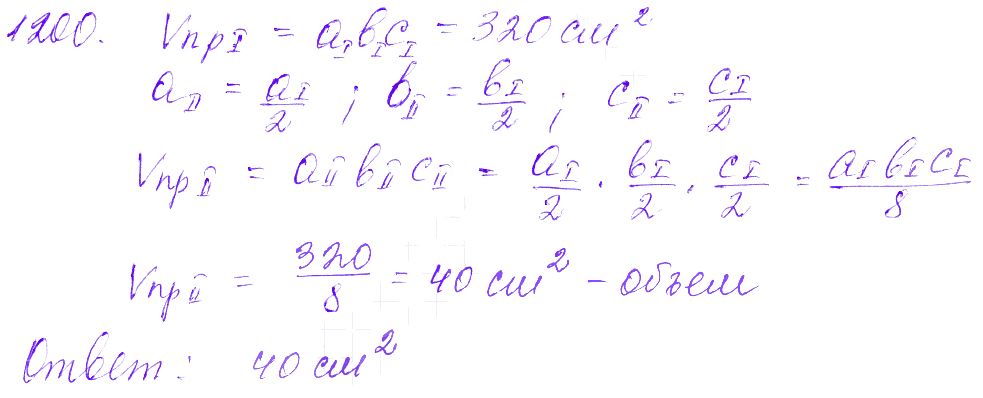 1200. Vпр I = a_I b_I c_I = 320 см²
a_II = a_I/2 ; b_II = b_I/2 ; c_II = c_I/2
Vпр II = a_II b_II c_II = a_I/2 · b_I/2 · c_I/2 = a_I b_I c_I/8
Vпр II = 320/8 = 40 см² - объем
Ответ: 40 см²